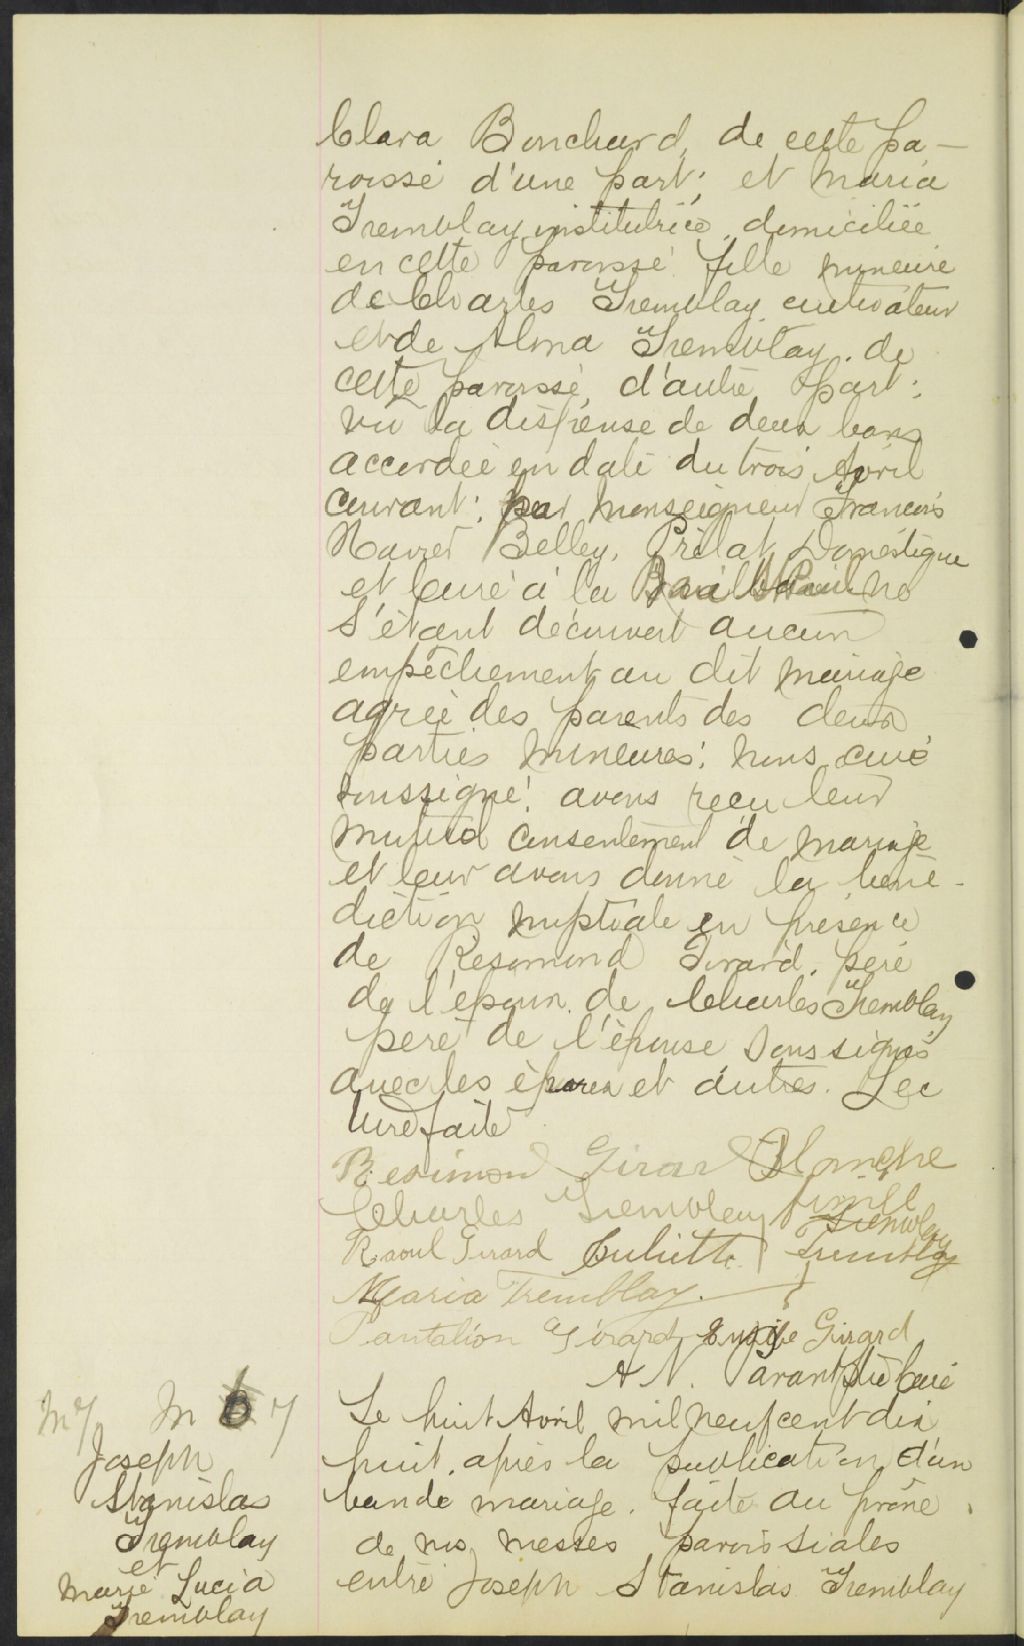 Clara Bouchard, de cette pa-
roisse d'une part; et Maria
Tremblay institutrice, domiciliée
en cette paroisse fille mineure
de Charles Tremblay cultivateur
et de Alma Tremblay. de
cette paroisse, d'autre part:
vu la dispense de deux bans
accordée en date du trois Avril
courant: par Monseigneur François
Xavier Belley, Prélat Domestique
et Curé à la Baie St Paul ne
s'étant découvert aucun
empêchement au dit mariage
agréé des parents des deux
parties mineures: nous curé
soussigné! avons reçu leur
mutuel consentement de mariage
et leur avons donné la béné-
diction nuptiale en présence
de Résimond Girard. père
de l'époux. de Charles Tremblay
père de l'épouse soussignés
avec les époux et autres. Lec
ture faite
Résimond Girard Blanche
Charles Tremblay Tremblay
Raoul Girard Juliette Tremblay
Maria Tremblay.
Pantalion Girard Girard
A N. Parant Ptre Curé
M 7 M 6 7
Joseph
Stanislas
Tremblay
et
Marie Lucia
Tremblay
Le huit Avril mil neuf cent dix
huit. après la publication d'un
ban de mariage. faite au prône
de nos messes paroissiales
entre Joseph Stanislas Tremblay